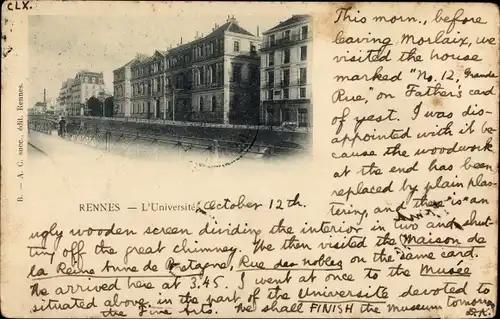 CLX.
This morn., before
leaving Morlaix, we
visited the house
marked "No. 12, Grande
Rue," on Father's card
of yest. I was dis-
appointed with it be
cause the woodwork
at the end has been
replaced by plain plas
tering, and there is an
B. - A. G. succ., édit. Rennes.
RENNES. — L'Université.
October 12th.
ugly wooden screen dividing the interior in two and shut-
ting off the great chimney. We then visited the Maison de
la Reine Anne de Bretagne, Rue des Nobles on the same card.
We arrived here at 3.45. I went at once to the Musée
situated above, in the part of the Université devoted to
the Fine Arts. We shall FINISH the museum tomorrow